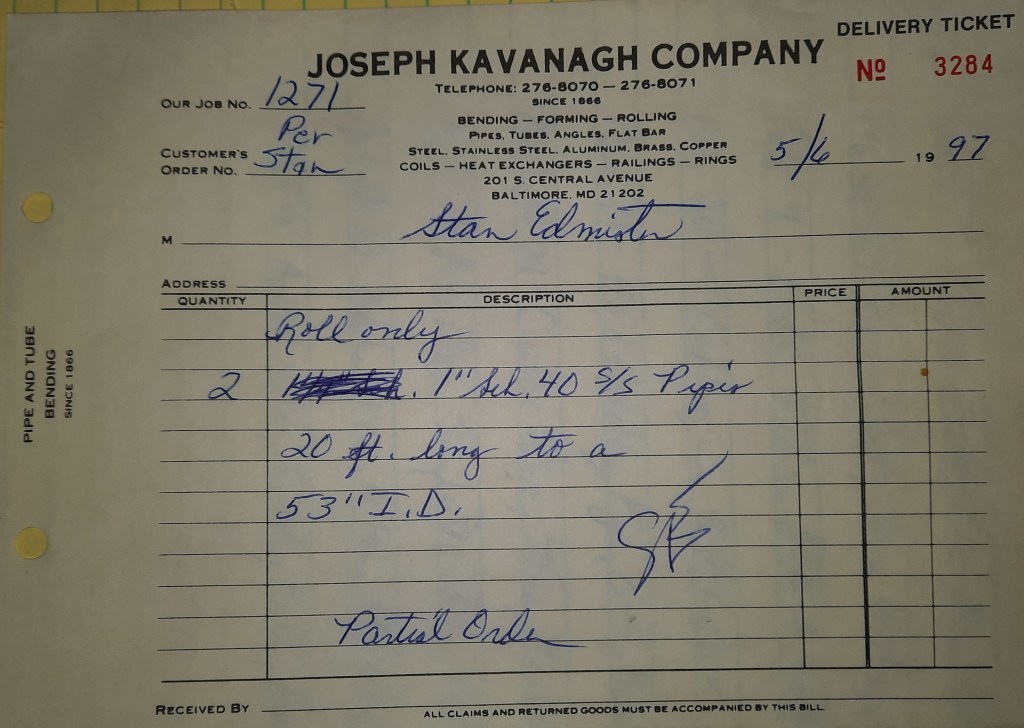 DELIVERY TICKET
JOSEPH KAVANAGH COMPANY
Nº 3284
TELEPHONE: 276-8070 — 276-8071
SINCE 1866
OUR JOB NO. 1271
BENDING — FORMING — ROLLING
PIPES, TUBES, ANGLES, FLAT BAR
STEEL, STAINLESS STEEL, ALUMINUM, BRASS, COPPER
COILS — HEAT EXCHANGERS — RAILINGS — RINGS
201 S. CENTRAL AVENUE
BALTIMORE, MD 21202
Per
CUSTOMER'S
ORDER NO. Stan
5/6 19 97
M Stan Edmister
ADDRESS
QUANTITY DESCRIPTION PRICE AMOUNT
Roll only
2 1" Sch. 40 S/S Pipes
20 ft. long to a
53" I.D.
Partial Order
RECEIVED BY
ALL CLAIMS AND RETURNED GOODS MUST BE ACCOMPANIED BY THIS BILL
PIPE AND TUBE
BENDING
SINCE 1866